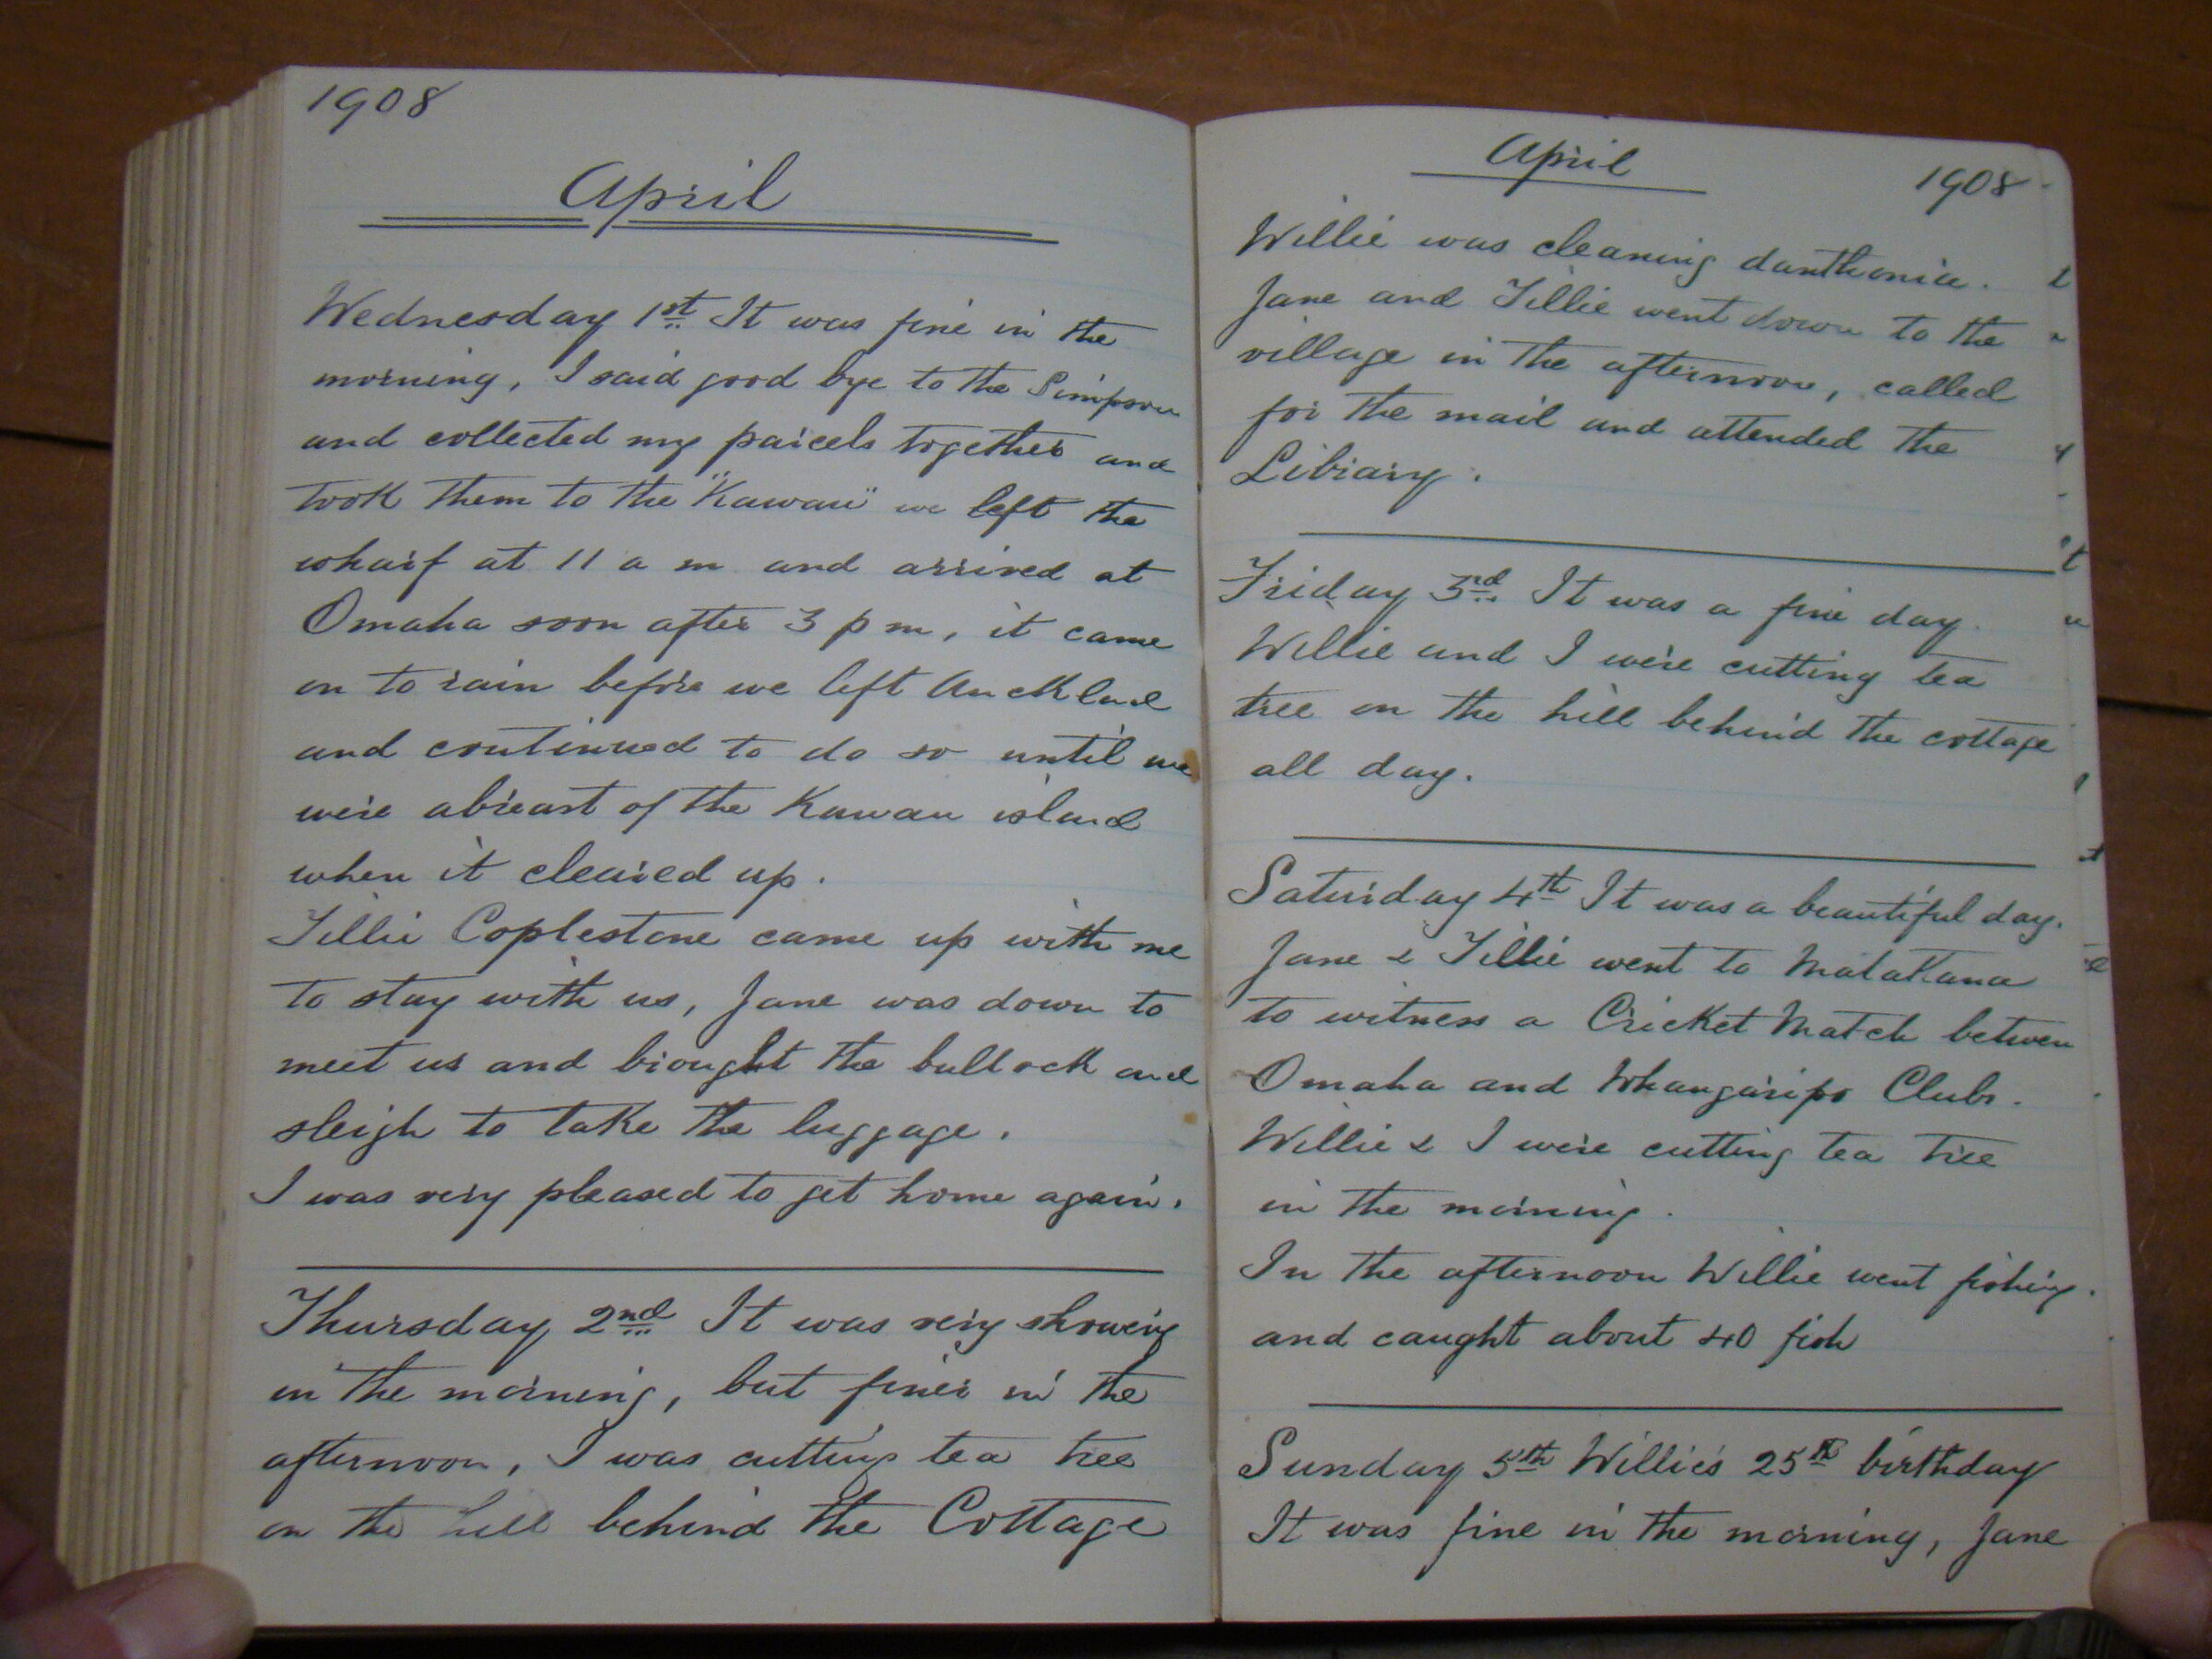 1908
April
Wednesday 1st It was fine in the
morning, I said good bye to the Simpson
and collected my parcels together and
took them to the "Kawau" we left the
wharf at 11 a m and arrived at
Omaha soon after 3 p m, it came
on to rain before we left Auckland
and continued to do so until we
were abreast of the Kawau island
when it cleared up.
Tillie Coplestone came up with me
to stay with us, Jane was down to
meet us and brought the bullock and
sleigh to take the luggage.
I was very pleased to get home again.
Thursday 2nd It was very showery
in the morning, but finer in the
afternoon, I was cutting tea tree
on the hill behind the Cottage
April
1908
Willie was cleaning danthonia.
Jane and Tillie went down to the
village in the afternoon, called
for the mail and attended the
Library.
Friday 3rd It was a fine day.
Willie and I were cutting tea
tree on the hill behind the cottage
all day.
Saturday 4th It was a beautiful day.
Jane & Tillie went to Matakana
to witness a Cricket Match betwen
Omaha and Whangaripo Clubs.
Willie & I were cutting tea tree
in the morning.
In the afternoon Willie went fishing.
and caught about 40 fish
Sunday 5th Willie's 25th birthday
It was fine in the morning, Jane